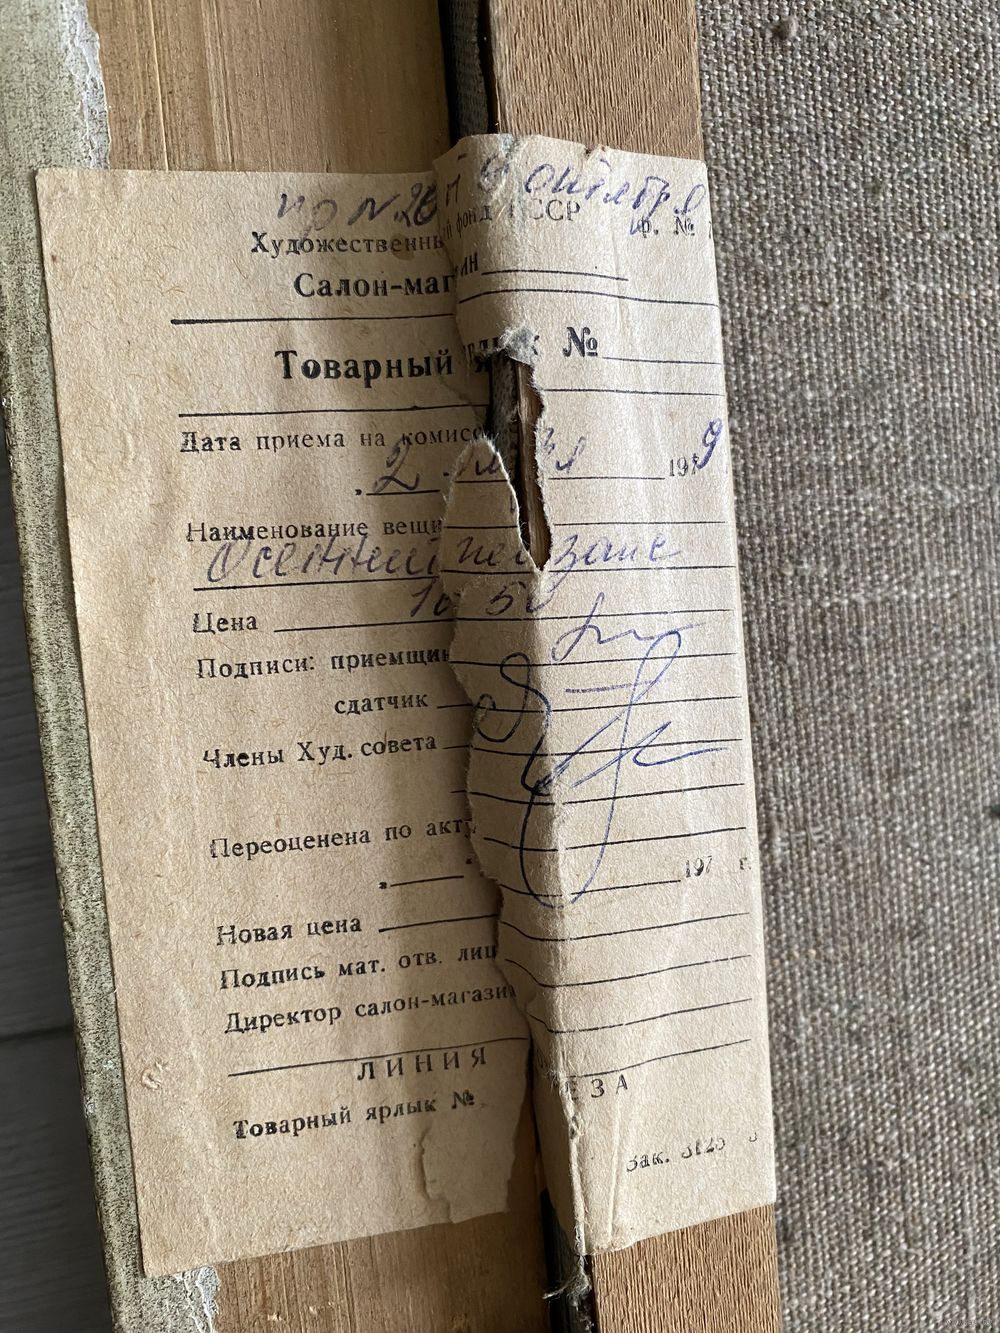 пр № 26 от 9 октября
Художественный фонд СССР ф. №
Салон-магазин
Товарный ярлык №
Дата приема на комисс
2. 1979
Наименование вещи
Осенний пейзаж
Цена 10 50
Подписи: приемщик
сдатчик
Члены Худ. совета
Переоценена по акту
" " 197 г.
Новая цена
Подпись мат. отв. лиц
Директор салон-магазин
ЛИНИЯ ЕЗА
Товарный ярлык №
Зак.